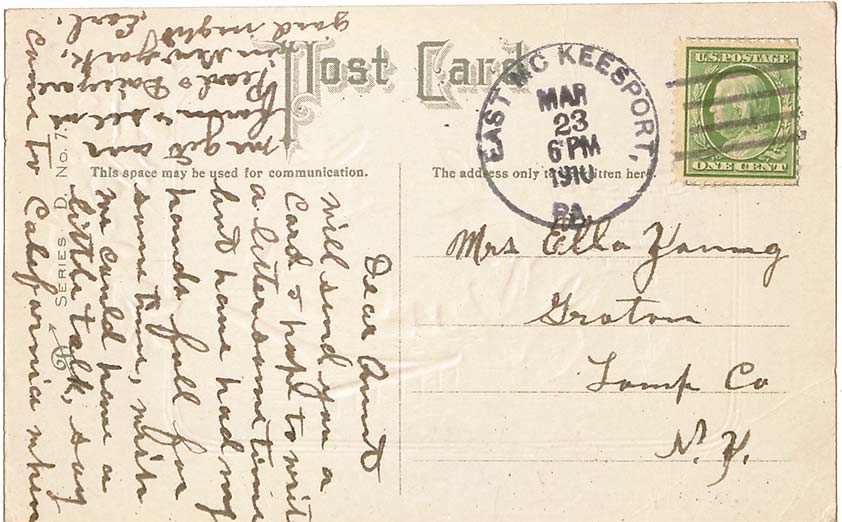 Post Card
This space may be used for communication.
The address only to be written here.
EAST MC KEESPORT,
MAR
23
6 PM
1910
PA.
U.S. POSTAGE
ONE CENT
SERIES D. No. 7.
Mrs Ella Young
Groton
Tomp Co
N.Y.
Dear Aunt
will send you a
Card & hope to write
a letter some time
but have had my
hands full for
some time, wish
we could have a
little talk, say
come to California when
we get our
seed
Pearl &
in New York,
good night Earl.